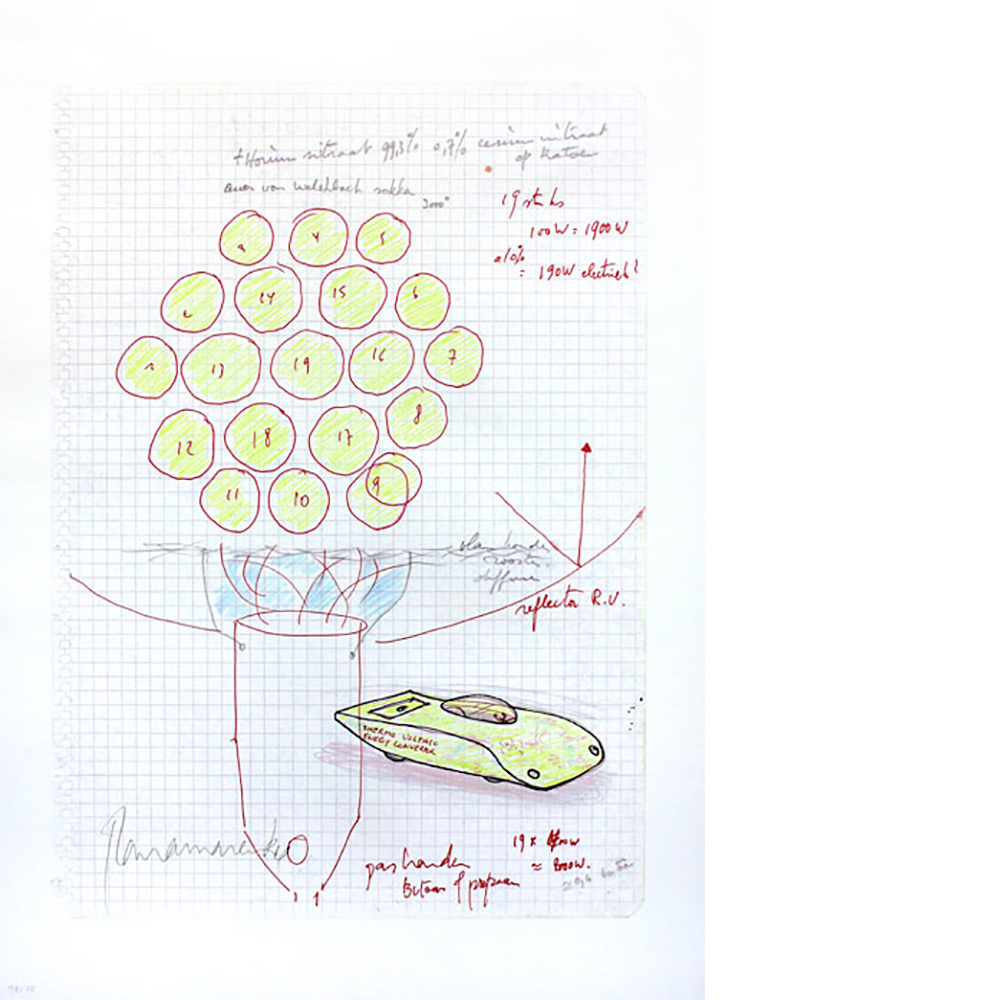 thorium nitraat 99,3% 0,7% cerium nitraat
op katoen
auer von welshbach sokken
2000°
19 stuks
100W = 1900W
à 10%
= 190W electriek?
3 4 5
2 14 15 6
1 13 19 16 7
12 18 17 8
11 10 9
rooster
reflector R.V.
THERMO VOLTAIC
ENERGY CONVERTER
Panamarenko
19 x 100W
≈ 2000W.
gas branden
Butaan of propaan